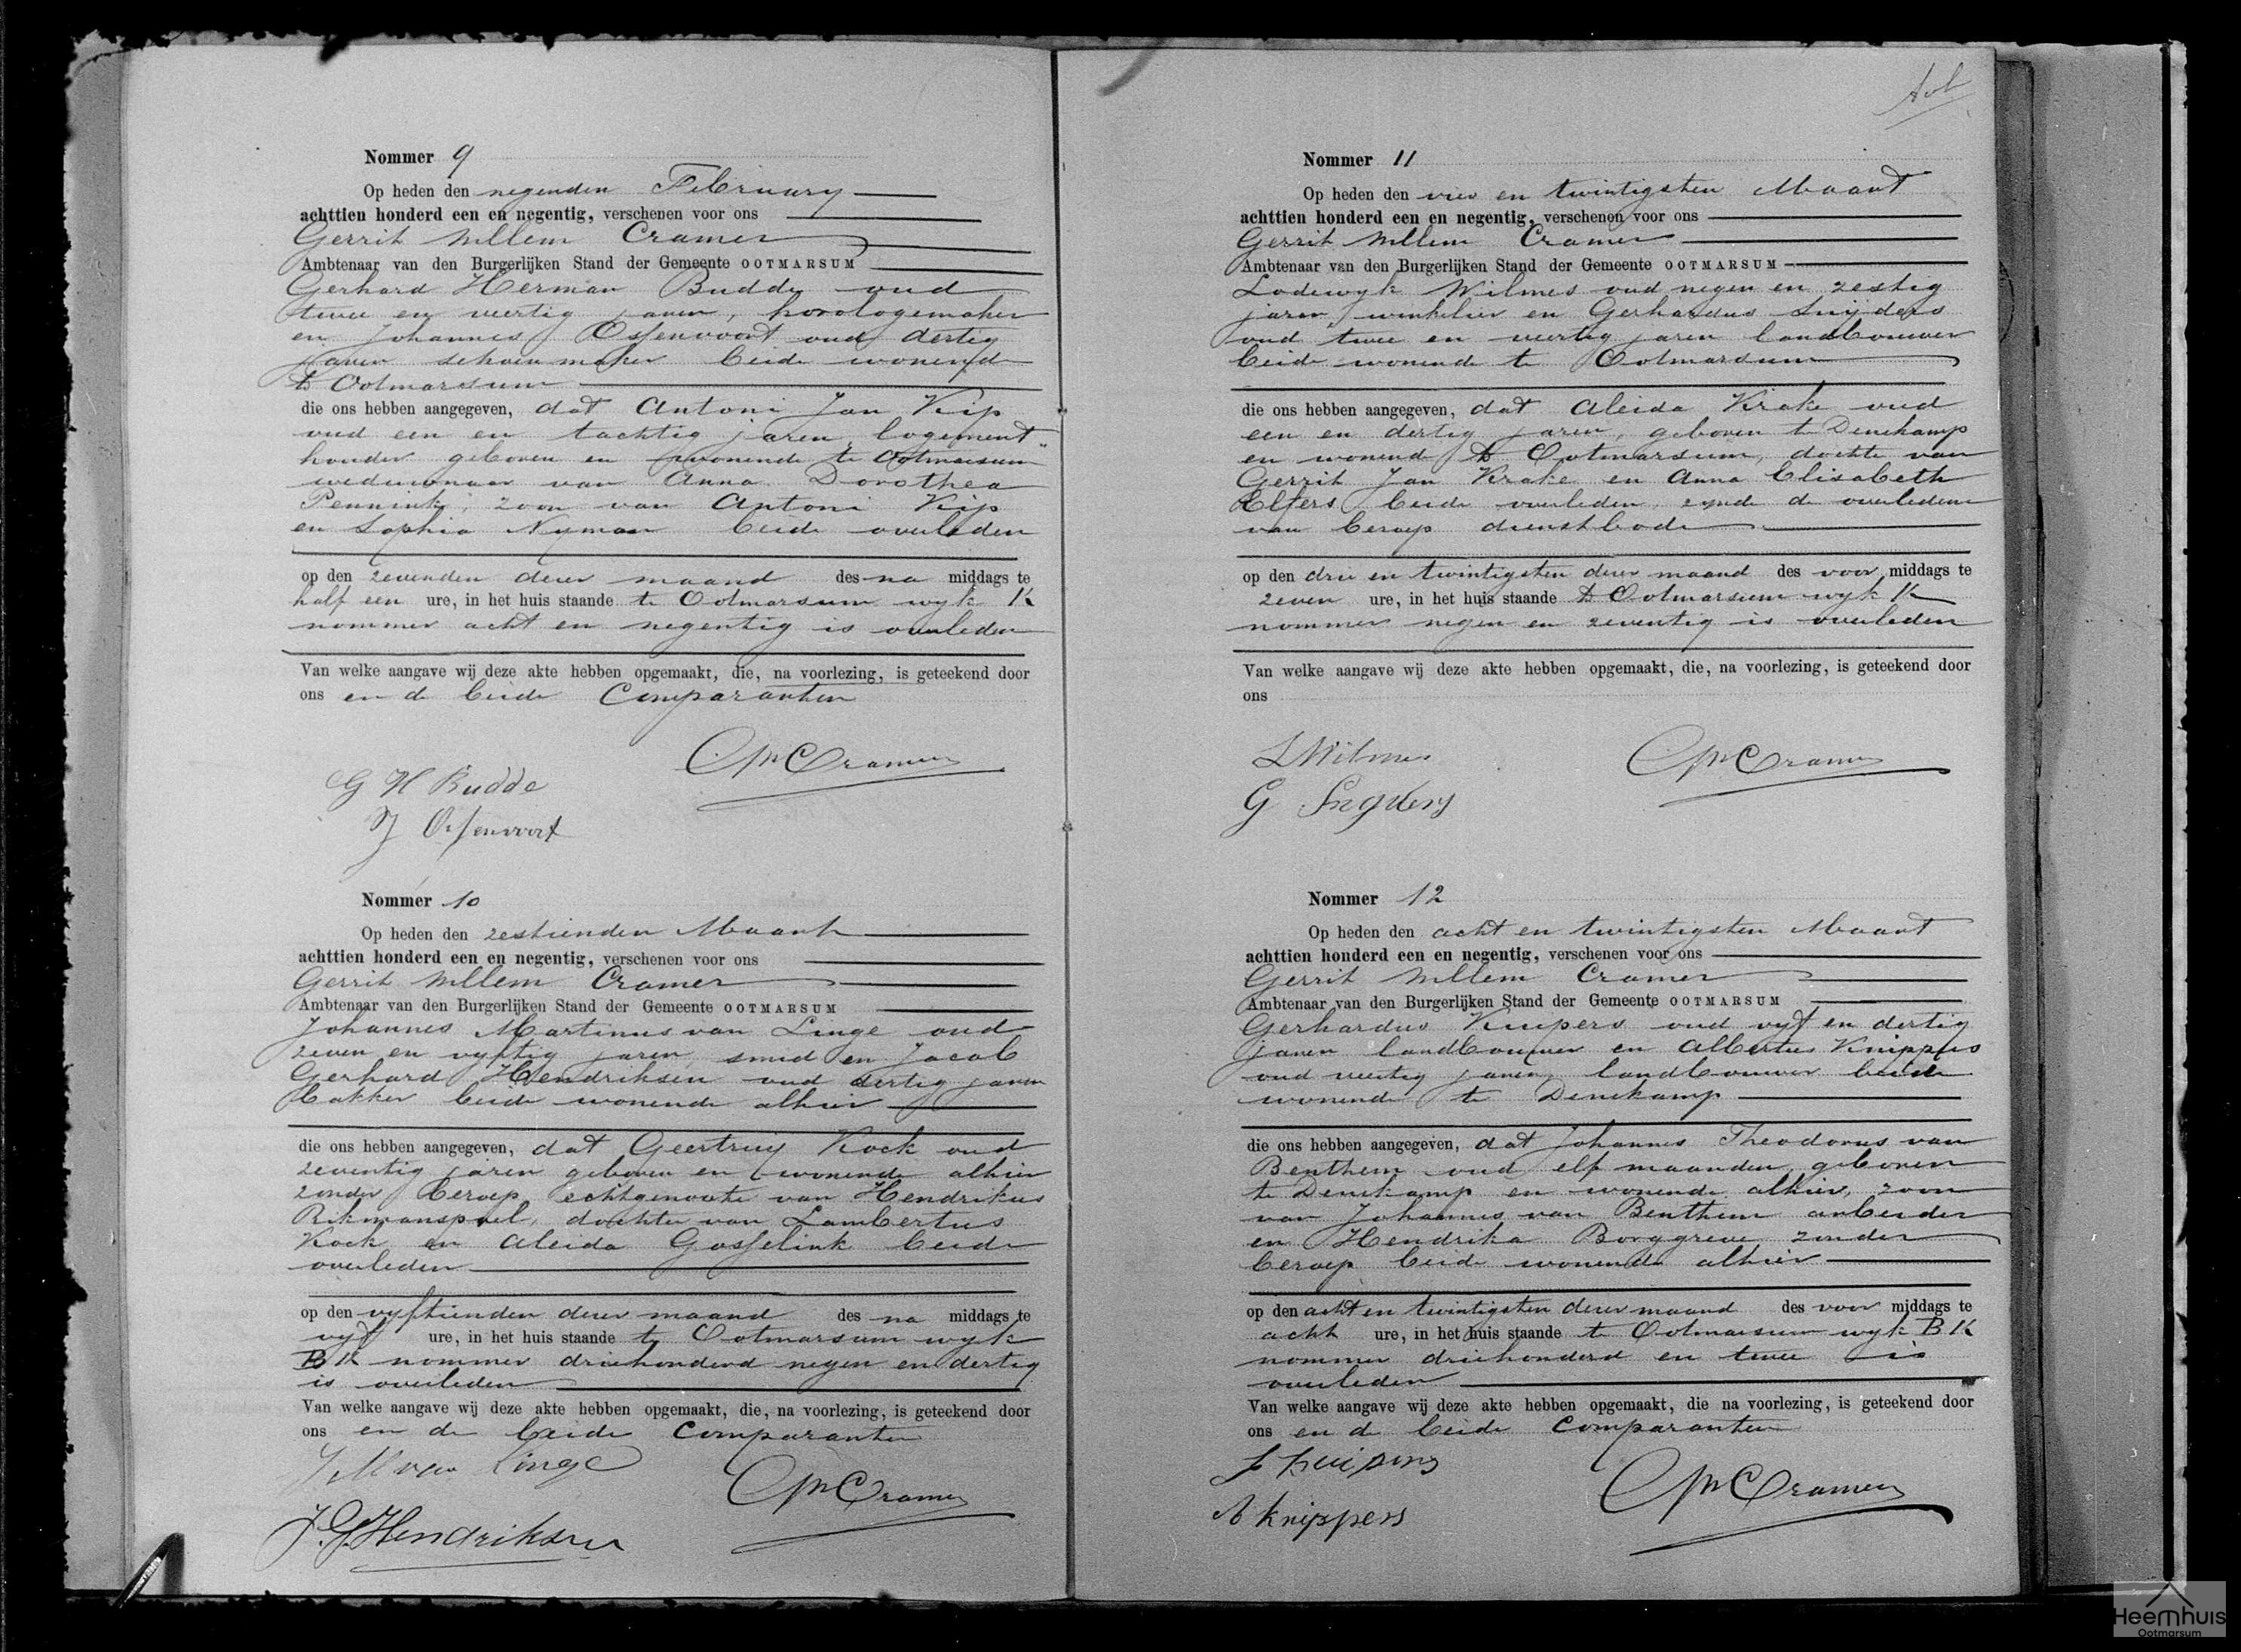 Nommer 9
Op heden den negenden February
achttien honderd een en negentig, verschenen voor ons
Gerrit Willem Cramer
Ambtenaar van den Burgerlijken Stand der Gemeente OOTMARSUM
Gerhard Herman Budde oud
twee en veertig jaren, horologemaker
en Johannes Ossenvoort oud dertig
jaren schoenmaker beide wonende
te Ootmarsum
die ons hebben aangegeven, dat Antoni Jan Kip
oud een en tachtig jaren, logement"
houder geboren en wonende te Ootmarsum
weduwnaar van Anna Dorothea
Pennink, zoon van Antoni Kip
en Sophia Nyman beide overleden
op den zevenden dezer maand des na middags te
half een ure, in het huis staande te Ootmarsum wyk K
nommer acht en negentig is overleden
Van welke aangave wij deze akte hebben opgemaakt, die, na voorlezing, is geteekend door
ons en de beide Comparanten
GW Cramer
G H Budde
J Ossenvoort
Nommer 10
Op heden den zestienden Maart
achttien honderd een en negentig, verschenen voor ons
Gerrit Willem Cramer
Ambtenaar van den Burgerlijken Stand der Gemeente OOTMARSUM
Johannes Martinus van Linge oud
zeven en vyftig jaren, smid en Jacob
Gerhard Hendriksen oud dertig jaren
bakker beide wonende alhier
die ons hebben aangegeven, dat Geertruy Kock oud
zeventig jaren geboren en wonende alhier
zonder beroep, echtgenoote van Hendrikus
Rikmanspoel, dochter van Lambertus
Kock en Aleida Gosselink beide
overleden
op den vyftienden dezer maand des na middags te
vyf ure, in het huis staande te Ootmarsum wyk
B K nommer driehonderd negen en dertig
is overleden
Van welke aangave wij deze akte hebben opgemaakt, die, na voorlezing, is geteekend door
ons en de beide Comparanten
J M van Linge
GW Cramer
J. G. Hendriksen
Nommer 11
Op heden den vier en twintigsten Maart
achttien honderd een en negentig, verschenen voor ons
Gerrit Willem Cramer
Ambtenaar van den Burgerlijken Stand der Gemeente OOTMARSUM
Lodewyk Wilmes oud negen en zestig
jaren, winkelier en Gerhardus Snijders
oud twee en veertig jaren landbouwer
beide wonende te Ootmarsum
die ons hebben aangegeven, dat Aleida Krake oud
een en dertig jaren, geboren te Denekamp
en wonend te Ootmarsum, dochter van
Gerrit Jan Krake en Anna Elisabeth
Elfers beide overleden, zynde de overledene
van beroep dienstbode
op den drie en twintigsten dezer maand des voor middags te
zeven ure, in het huis staande te Ootmarsum wyk K
nommer negen en zeventig is overleden
Van welke aangave wij deze akte hebben opgemaakt, die, na voorlezing, is geteekend door
ons
L Wilmes
GW Cramer
G Snyders
Nommer 12
Op heden den acht en twintigsten Maart
achttien honderd een en negentig, verschenen voor ons
Gerrit Willem Cramer
Ambtenaar van den Burgerlijken Stand der Gemeente OOTMARSUM
Gerhardus Kuipers oud vyf en dertig
jaren landbouwer en Albertus Knippers
oud veertig jaren, landbouwer beide
wonende te Denekamp
die ons hebben aangegeven, dat Johannes Theodorus van
Benthem oud elf maanden, geboren
te Denekamp en wonende alhier, zoon
van Johannes van Benthem arbeider
en Hendrika Borggreve zonder
beroep beide wonende alhier
op den acht en twintigsten dezer maand des voor middags te
acht ure, in het huis staande te Ootmarsum wyk B K
nommer driehonderd en twee is
overleden
Van welke aangave wij deze akte hebben opgemaakt, die na voorlezing, is geteekend door
ons en de beide Comparanten
Kuipers
GW Cramer
A Knippers
Heemhuis
Ootmarsum